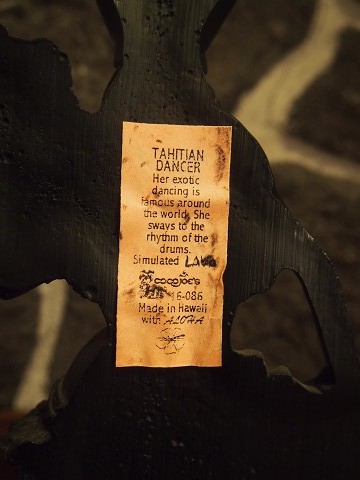 TAHITIAN
DANCER
Her exotic
dancing is
famous around
the world. She
sways to the
rhythm of the
drums.
Simulated LAVA
16-086
Made in Hawaii
with ALOHA